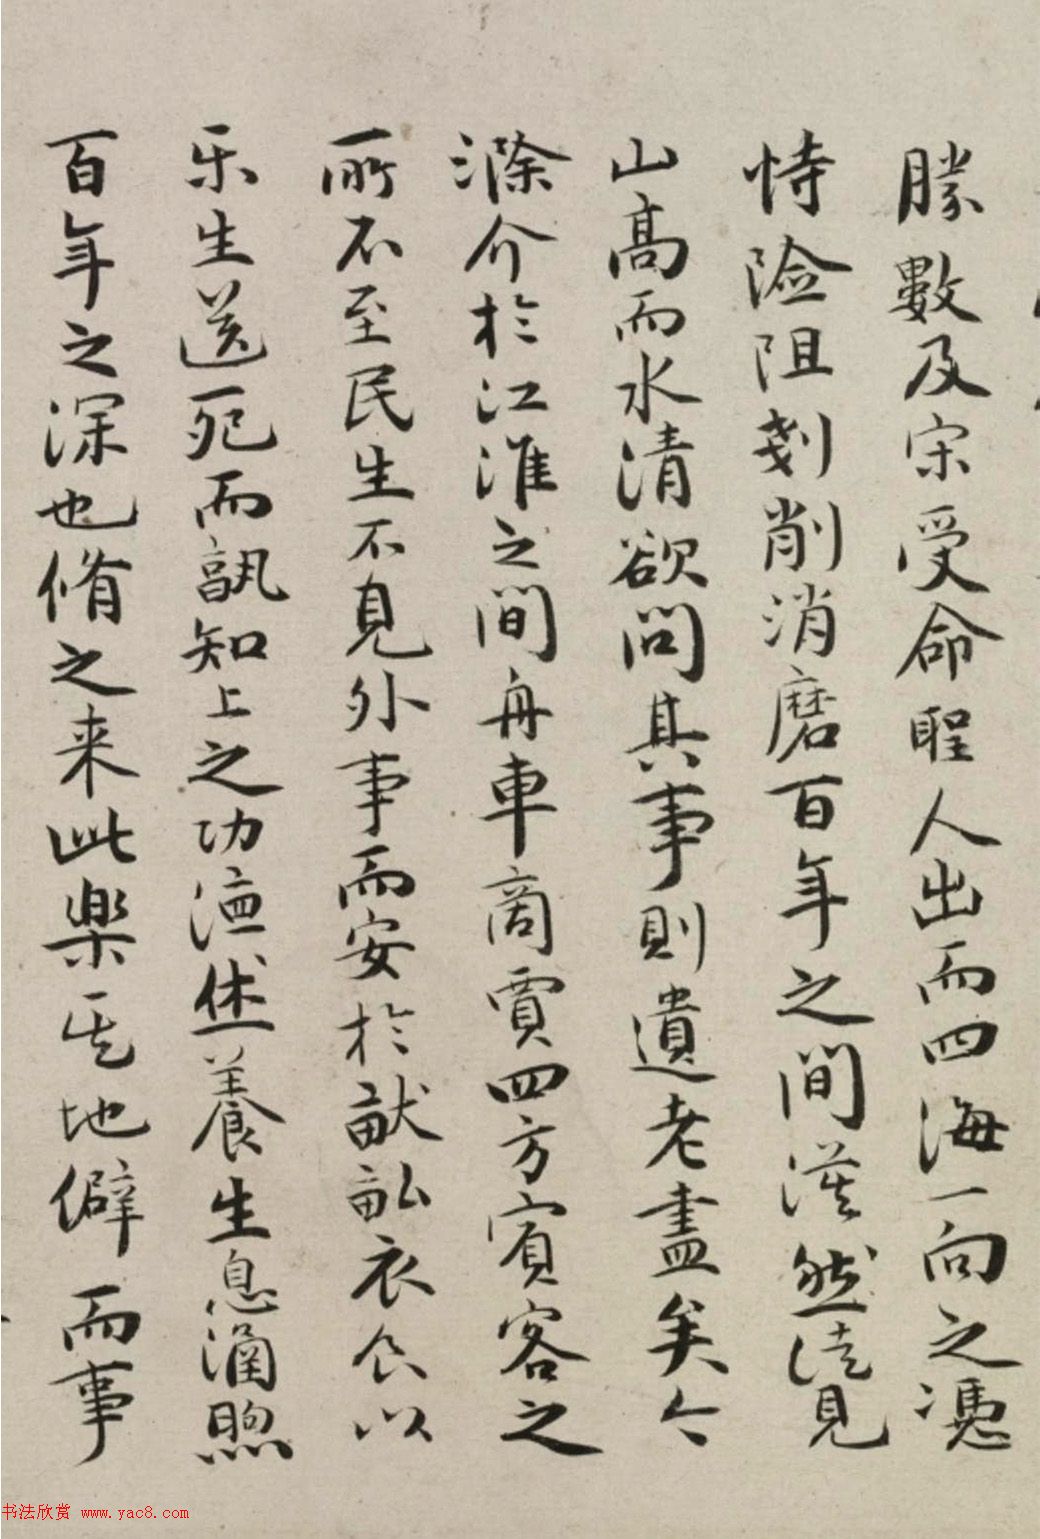 勝數及宋受命聖人出而四海一向之憑
恃險阻剗削消磨百年之間漠然徒見
山高而水清欲問其事則遺老盡矣今
滁介於江淮之間舟車商賈四方賓客之
所不至民生不見外事而安於畎畝衣食以
乐生送死而孰知上之功德休養生息涵煦
百年之深也脩之来此樂其地僻而事
书法欣赏 www.yac8.com